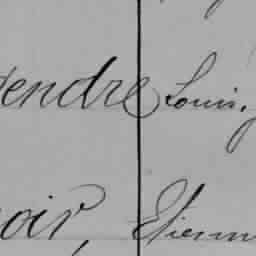 endre Louis.
oir, Etienn